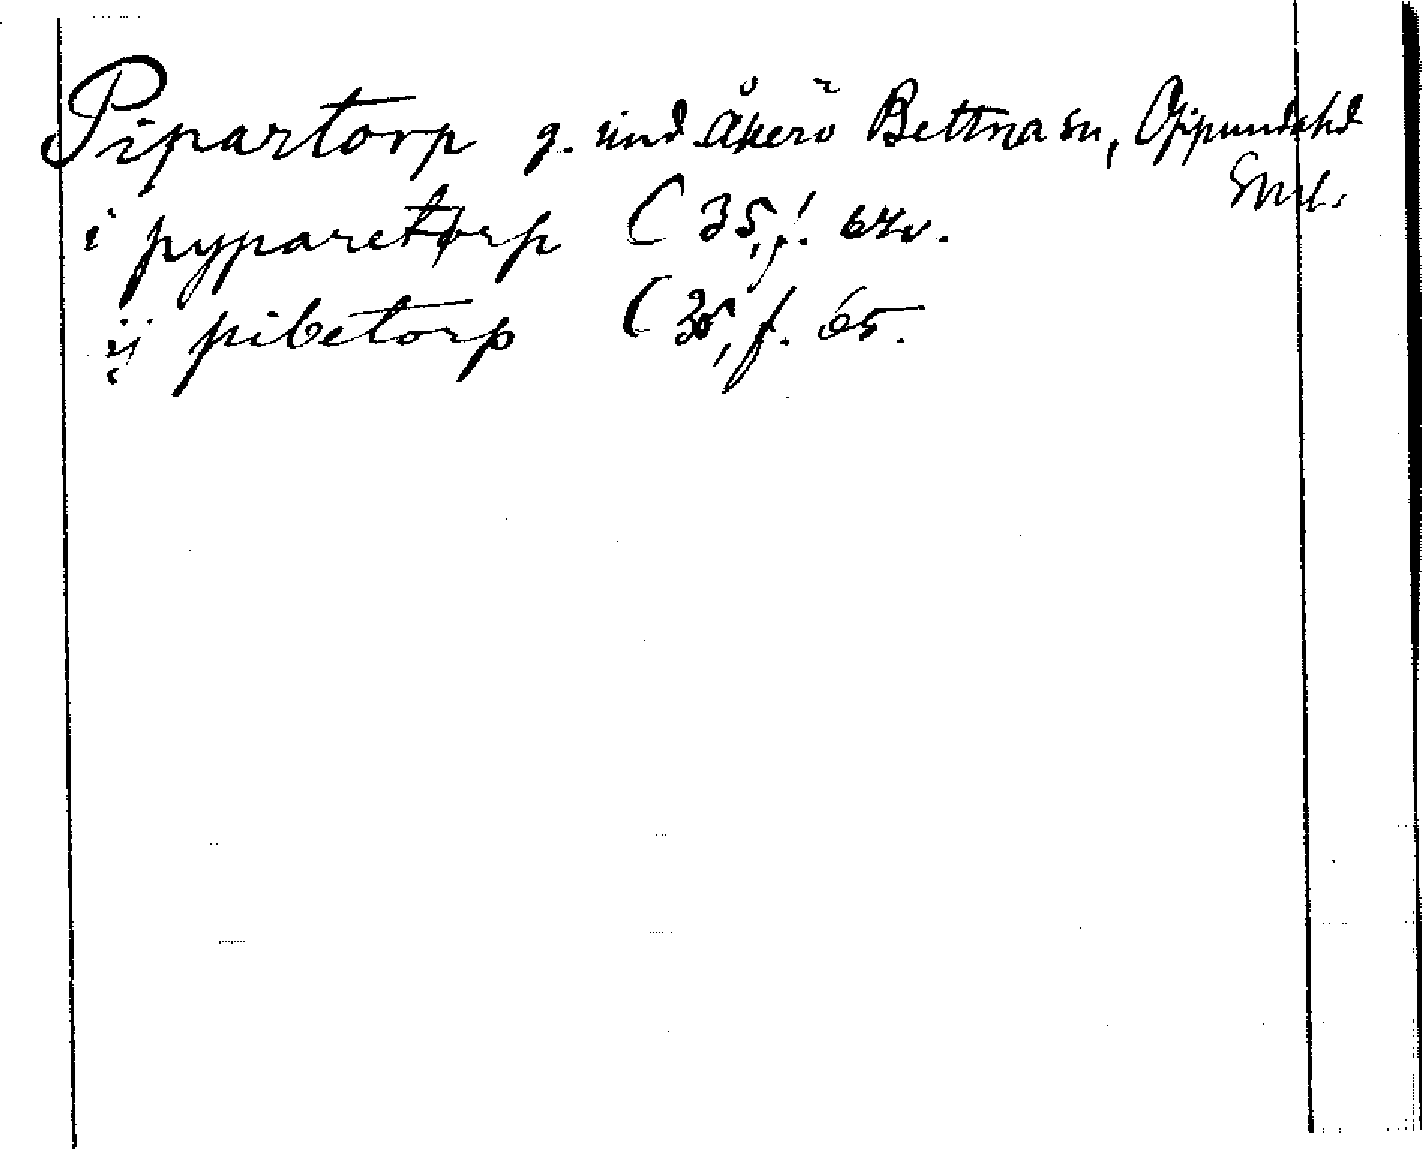 Pipartorp g. und. Åkerö Bettna sn, Oppundahd
Sml.
i pyparetorp C 35, f. 64v.
ij pibetorp C 35, f. 65.